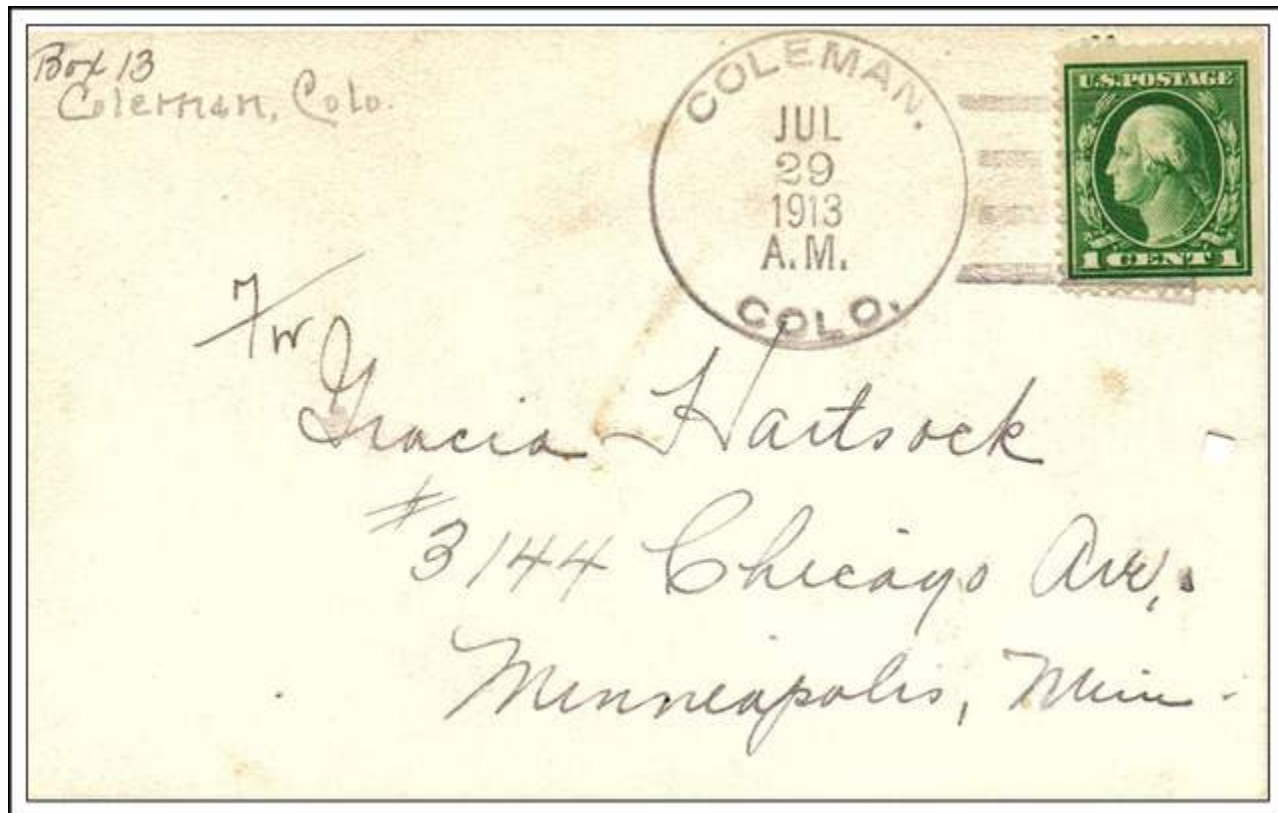 Box 13
Coleman, Colo.
COLEMAN.
JUL
29
1913
A.M.
COLO.
U.S. POSTAGE
1 CENT 1
Gracia Hartsock
#3144 Chicago Ave.
Minneapolis, Minn.